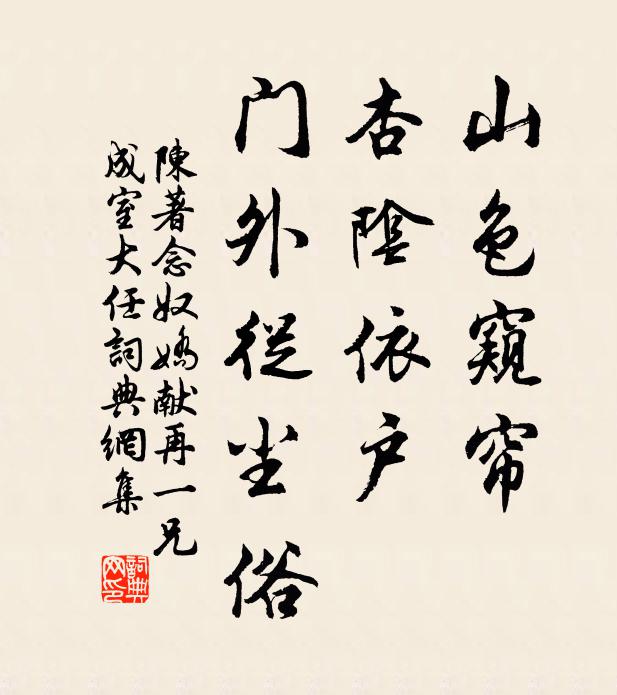 山色窺帘
杏陰依户
门外從尘俗
陳著念奴嬌献再一兄
成室大任詞典網集
詞典网印